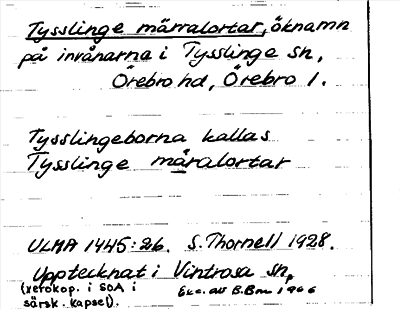 Tysslinge märralortar, öknamn
på invånarna i Tysslinge sn,
Örebro hd, Örebro l.
Tysslingeborna kallas
Tysslinge måralortar
ULMA 1445:26. S. Thornell 1928.
Upptecknat i Vintrosa sn.
(xerokop. i SOA i
särsk. kapsel).
Exc. av B.Bm 1966